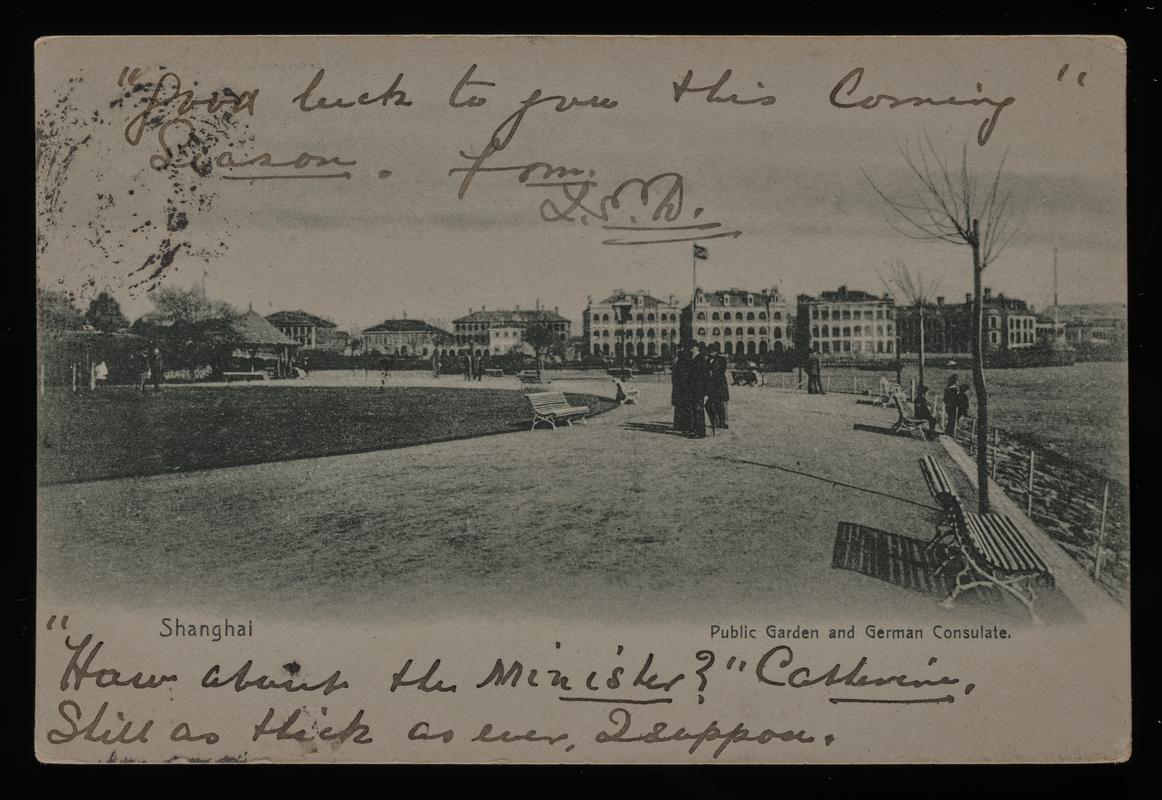 "Good luck to you this Coming "
Season. from.
Shanghai
Public Garden and German Consulate.
"How about the Minister?" Catherine,
Still as thick as ever, I suppose.